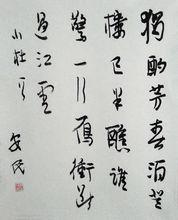 獨酌芳春酒登
樓已半醺誰
驚一行雁衝斷
過江雲
小杜句
安民